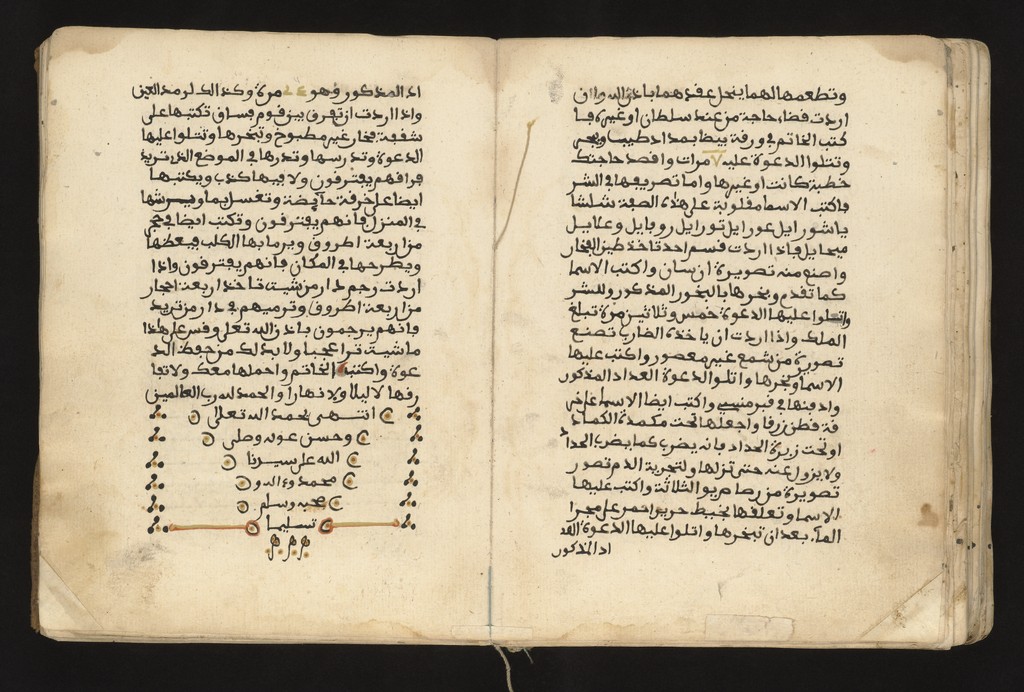 وتطعمها لهما ينحل عقدهما باذن الله وان
اردت قضاء حاجة من عند سلطان او غيره فا
كتب الخاتم في ورقة بيضا بمداد طيب وبخر
وتتلوا الدعوة عليه ٧ مرات واقصد حاجتك
خطبة كانت او غيرها واما تصريفها في الشر
فاكتب الاسما مقلوبة على هذه الصفة شلشا
يا شورايل عورايل تورايل روبايل وعنايل
ميحايل فاذا اردت قسم احد تاخذ طين الفخار
واصنع منه تصويرة انسان واكتب الاسما
كما تقدم وبخرها بالبخور المذكور وللشر
واتلوا عليها الدعوة خمس وثلاثين مرة تبلغ
الملك واذا اردت ان ياخذه الضارب تصنع
تصويرة من شمع غير معصور واكتب عليها
الاسما وبخرها واتلو الدعوة العداد المذكور
وادفنها في قبر منسي واكتب ايضا الاسما على خر
فة قطن زرقا واجعلها تحت مكمدة الكماد
او تحت زبرة الحداد فانه يضرب كما يضرب الحداد
ولا يزول عنه حتى تزلها ولتجرية الدم تصور
تصويرة من رصاص يوم الثلاثة واكتب عليها
الاسما وتعلقها بخيط حرير احمر على مجرا
الماء بعد ان تبخرها واتلوا عليها الدعوة العد
اد المذكور
اد المذكور وهو ٤٠ مرة وكذالك لرمد العين
واذا اردت ان تفرق بين قوم فساق تكتبها على
شقفة فخار غير مطبوخ وتبخرها وتتلوا عليها
الدعوة وتدرسها وتدرها في الموضع الذي تريد
فراقهم يفترقون ولا فيها كذب ويكتبها
ايضا على خرقة حايضة وتغسل بما ويرشها
في المنزل فانهم يفترقون وتكتب ايضا في حجر
من اربعة اطروق ويرما بها الكلب فيعضها
ويطرحها في المكان فانهم يفترقون واذا
اردت رجم دار من شيت تاخذ اربعة احجار
من اربعة اطروق وترميهم في دار من تريد
فانهم يرجمون باذن الله تعلى وقس على هذا
ما شيت ترا عجبا ولا بد لك من حفظ الد
عوة واكتب الخاتم واحملها معك ولا تفا
رقها لا ليلا ولا نهارا والحمد لله رب العالمين
انتهى بحمد الله تعالى
وحسن عونه وصلى
الله على سيدنا
محمد وءاله و
صحبه وسلم
تسليما
م م م